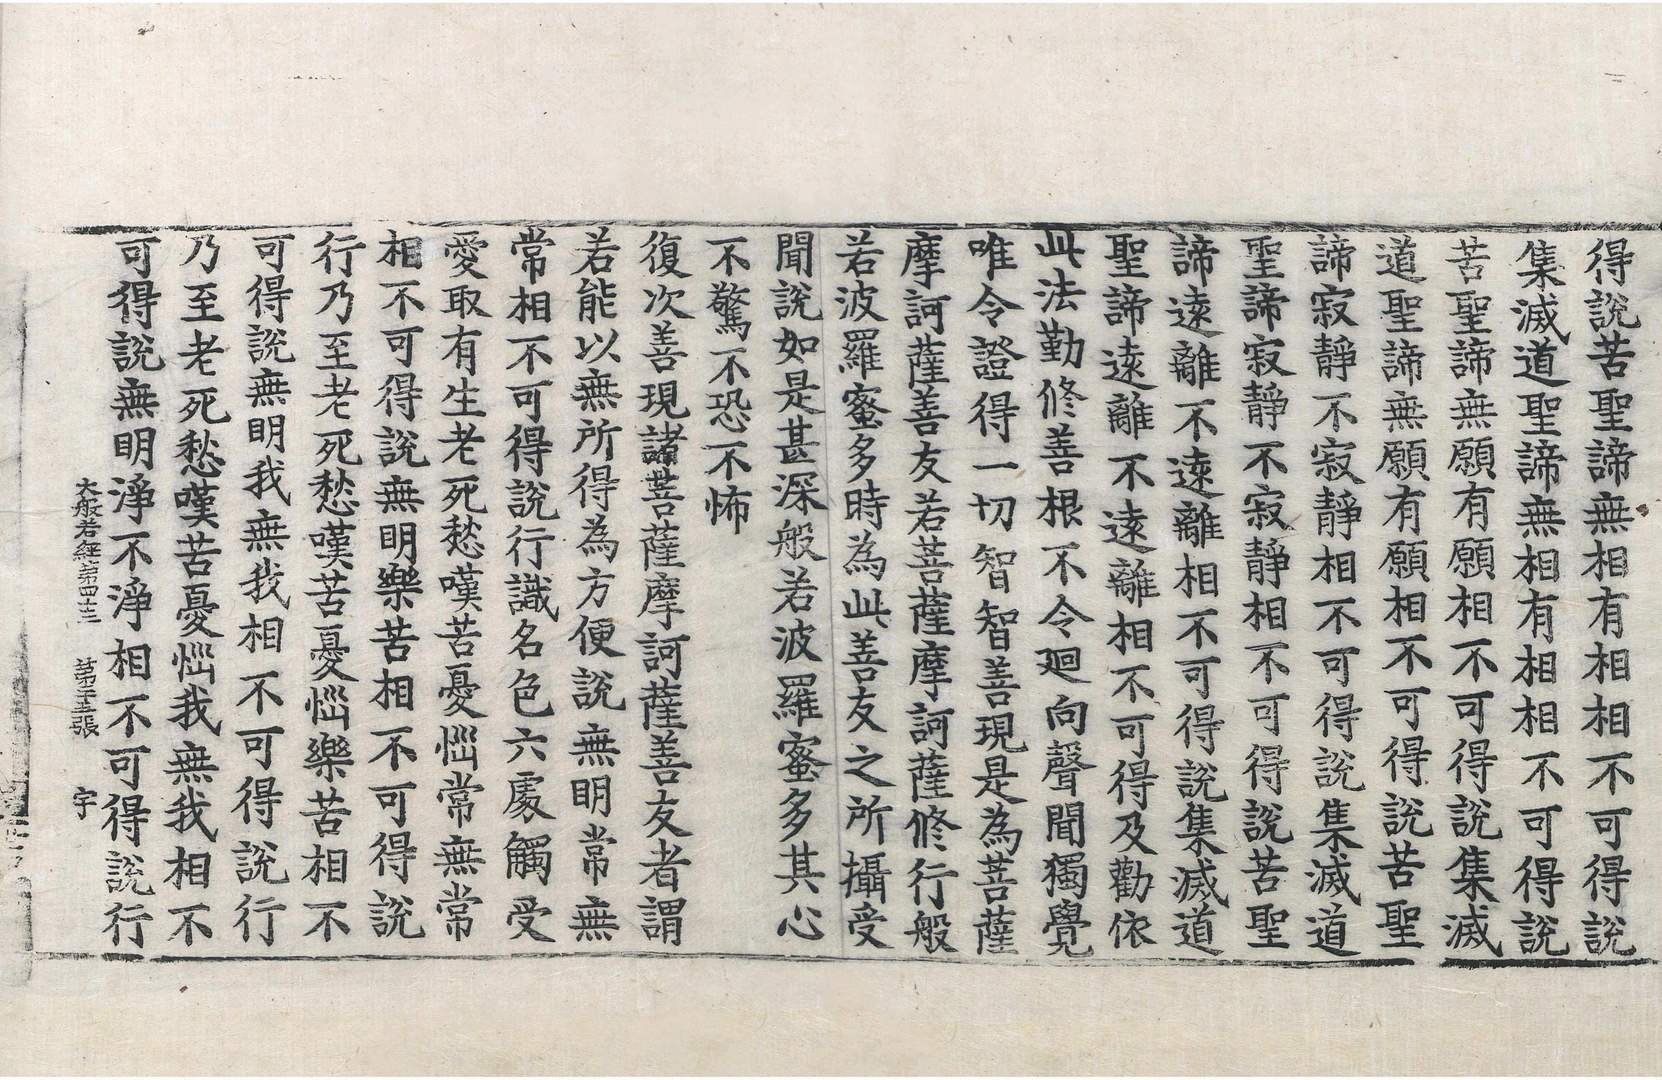 得說苦聖諦無相有相相不可得說
集滅道聖諦無相有相相不可得說
苦聖諦無願有願相不可得說集滅
道聖諦無願有願相不可得說苦聖
諦寂靜不寂靜相不可得說集滅道
聖諦寂靜不寂靜相不可得說苦聖
諦遠離不遠離相不可得說集滅道
聖諦遠離不遠離相不可得及勸依
此法勤修善根不令迴向聲聞獨覺
唯令證得一切智智善現是為菩薩
摩訶薩善友若菩薩摩訶薩修行般
若波羅蜜多時為此善友之所攝受
聞說如是甚深般若波羅蜜多其心
不驚不恐不怖
復次善現諸菩薩摩訶薩善友者謂
若能以無所得為方便說無明常無
常相不可得說行識名色六處觸受
愛取有生老死愁嘆苦憂惱常無常
相不可得說無明樂苦相不可得說
行乃至老死愁嘆苦憂惱樂苦相不
可得說無明我無我相不可得說行
乃至老死愁嘆苦憂惱我無我相不
可得說無明淨不淨相不可得說行
大般若經第四十三 第二十五張 宇